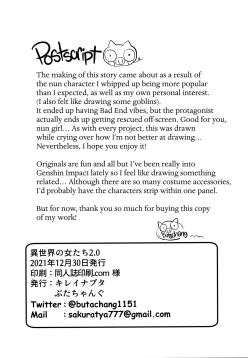 Postscript
The making of this story came about as a result of
the nun character I whipped up being more popular
than I expected, as well as my own personal interest.
(I also felt like drawing some goblins).
It ended up having Bad End vibes, but the protagonist
actually ends up getting rescued off-screen. Good for you,
nun girl... As with every project, this was drawn
while crying over how I'm not better at drawing...
Nevertheless, I hope you enjoy it!
Originals are fun and all but I've been really into
Genshin Impact lately so I feel like drawing something
related... Although there are so many costume accessories,
I'd probably have the characters strip within one panel.
But for now, thank you so much for buying this copy
of my work!
butachang
異世界の女たち2.0
2021年12月30日発行
印刷：同人誌印刷.com 様
発行：キレイナブタ
ぶたちゃんぐ
Twitter : @butachang1151
Mail : sakuratya777@gmail.com